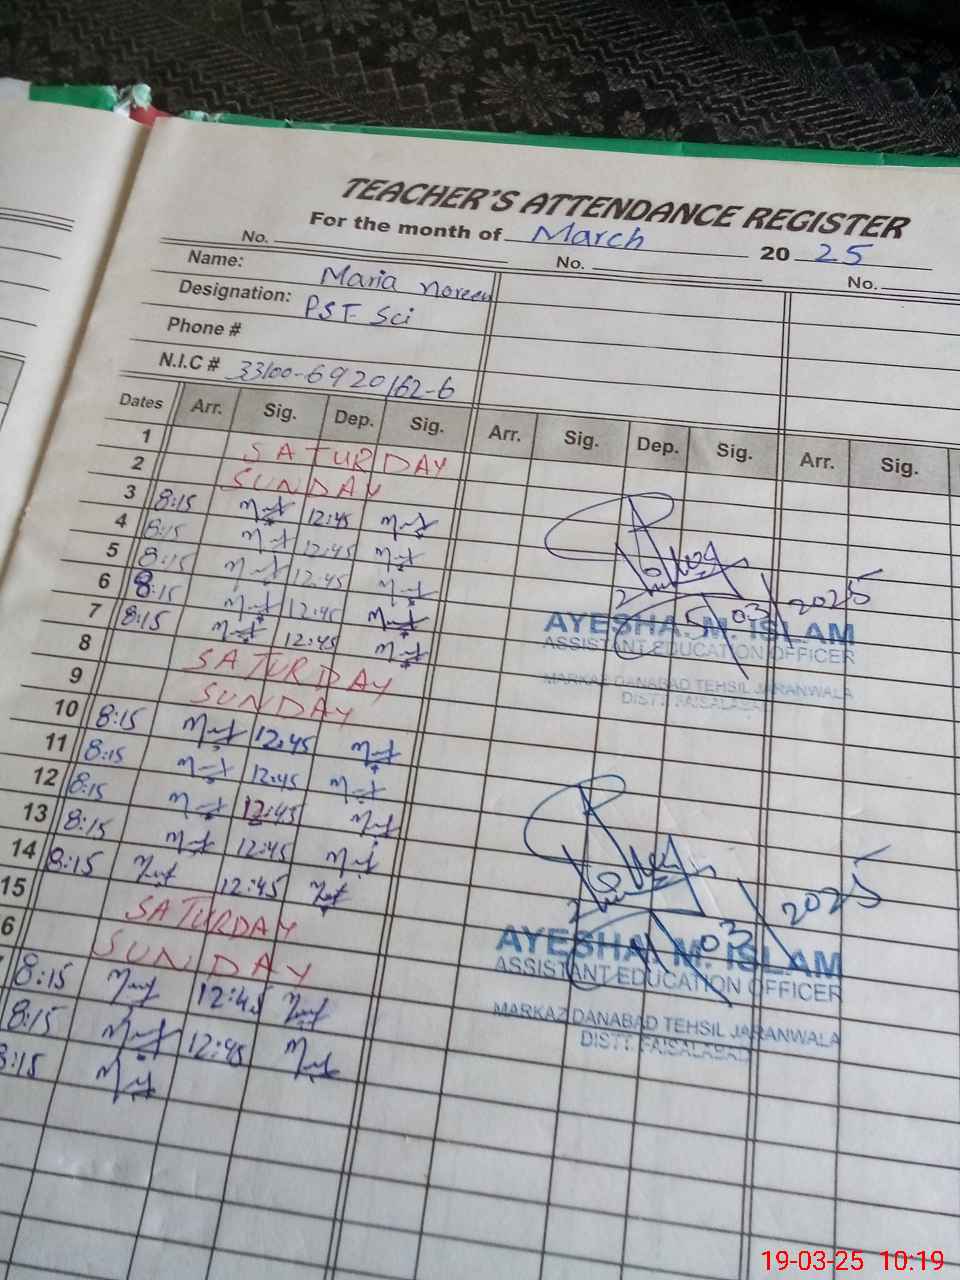 TEACHER'S ATTENDANCE REGISTER
For the month of March 2025
No. No. No.
Name: Maria Noreen
Designation: PST Sci
Phone #
N.I.C # 33100-6920162-6
Dates Arr. Sig. Dep. Sig. Arr. Sig. Dep. Sig. Arr. Sig.
1 SATURDAY
2 SUNDAY
3 8:15 12:45
4 8:15 12:45
5 8:15 12:45
6 8:15 12:45
7 8:15 12:45
8 SATURDAY
9 SUNDAY
10 8:15 12:45
11 8:15 12:45
12 8:15 12:45
13 8:15 12:45
14 8:15 12:45
15 SATURDAY
6 SUNDAY
8:15 12:45
8:15 12:45
8:15
5/03/2025
AYESHA. M. ISLAM
ASSISTANT EDUCATION OFFICER
MARKAZ DANABAD TEHSIL JARANWALA
DISTT. FAISALABAD
03/2025
AYESHA. M. ISLAM
ASSISTANT EDUCATION OFFICER
MARKAZ DANABAD TEHSIL JARANWALA
DISTT. FAISALABAD
19-03-25 10:19